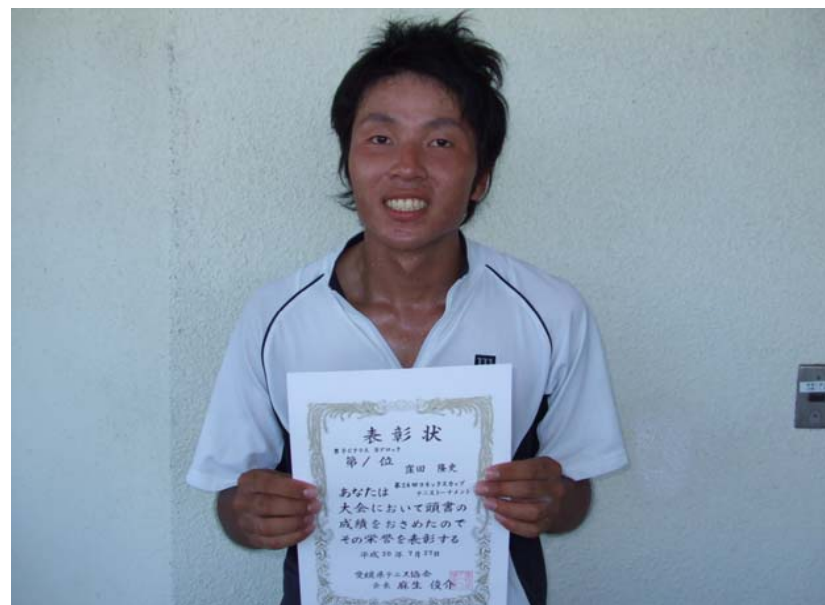 表彰状
男子Cクラス Bブロック
第1位
窪田 隆史
あなたは 第26回ヨネックスカップ
テニストーナメント
大会において頭書の
成績をおさめたので
その栄誉を表彰する
平成20年7月27日
愛媛県テニス協会
会長 麻生 俊介